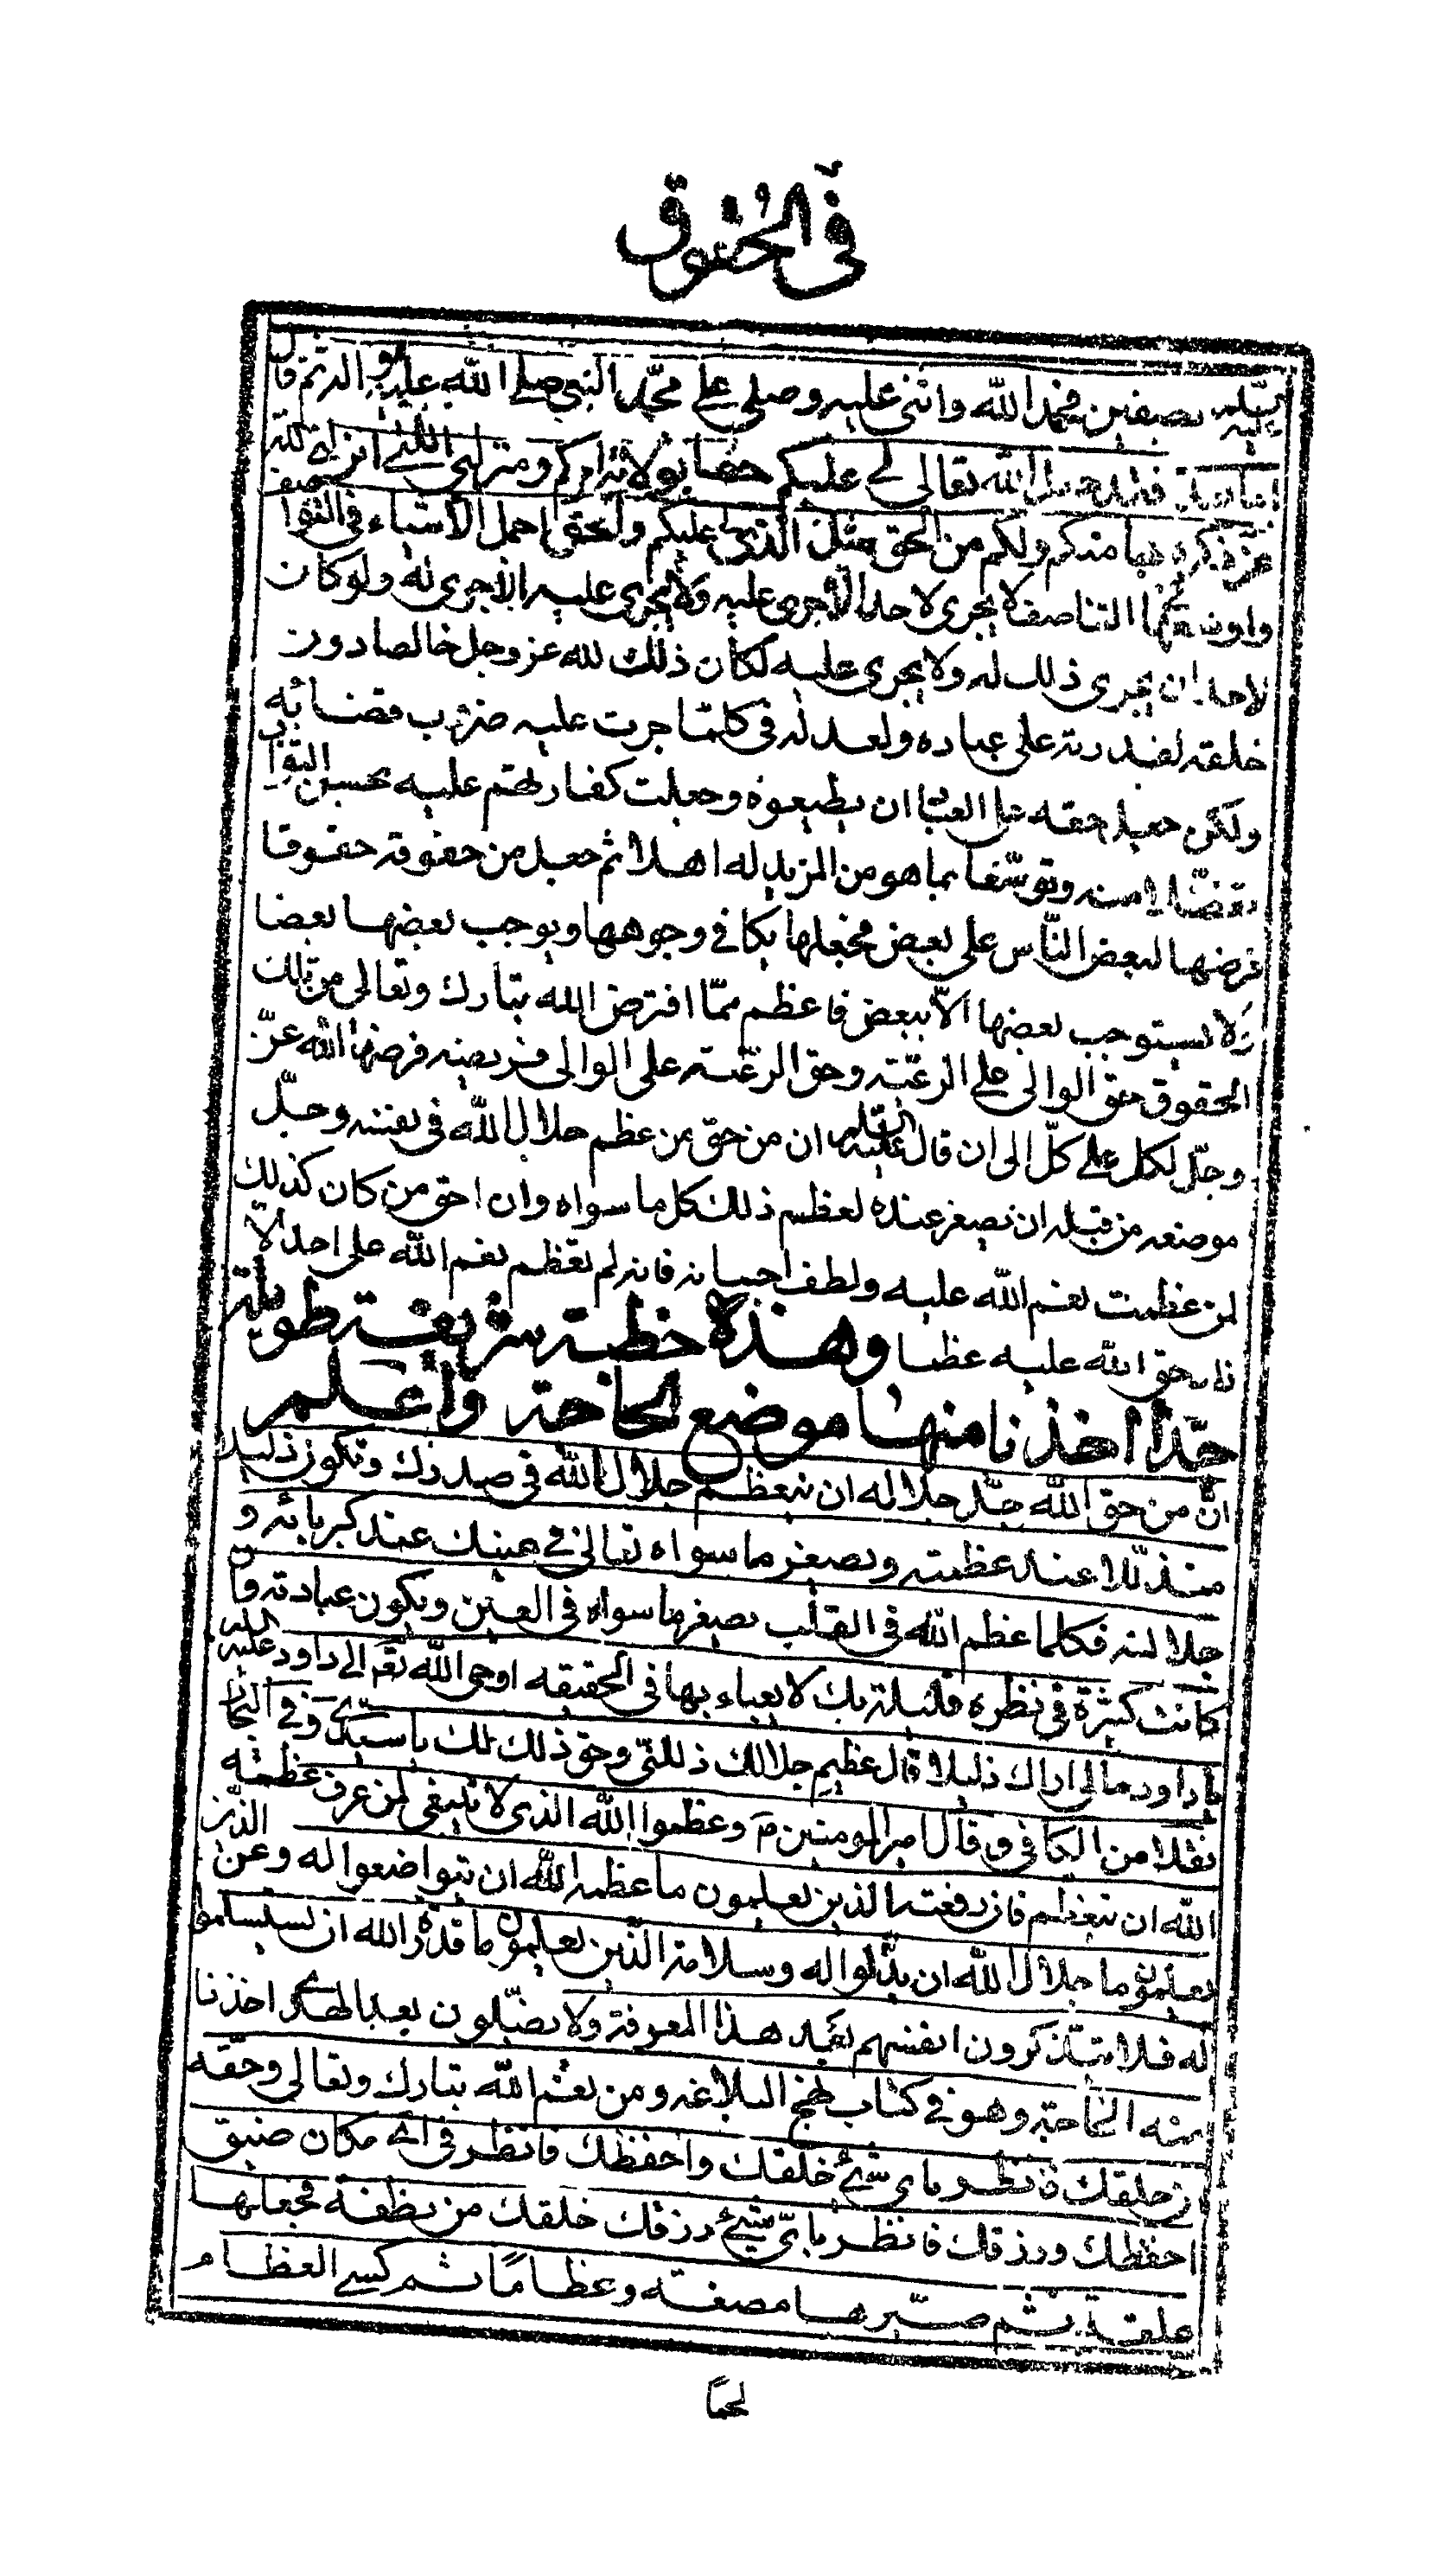 فی الحقوق
السلم بصفین فحمد الله واثنی علیه وصلی علی محمد النبی صلی الله علیه واله ثم قال
اما بعد فقد جعل الله تعالی لی علیکم حقا بولایة امرکم ومنزلتی التی انزلنی الله
عز ذکره بها منکم ولکم من الحق مثل الذی لی علیکم والحق اجمل الاشیاء فی التواصف
واوسعها فی التناصف لا یجری لاحد الا جری علیه ولا یجری علیه الا جری له ولو کان
لاحد ان یجری ذلک له ولا یجری علیه لکان ذلک لله عز وجل خالصا دون
خلقه لقدرته علی عباده ولعدله فی کلما جرت علیه ضروب قضائه
ولکن جعل حقه علی العباد ان یطیعوه وجعلت کفارتهم علیه بحسن الثواب
تفضلا منه وتوسعا بما هو من المزید له اهلا ثم جعل من حقوقه حقوقا
فرضها لبعض الناس علی بعض فجعلها تکافی وجوهها ویوجب بعضها بعضا
ولا یستوجب بعضها الا ببعض فاعظم مما افترض الله تبارک وتعالی من تلک
الحقوق حق الوالی علی الرعیة وحق الرعیة علی الوالی فریضة فرضها الله عز
وجل لکل علی کل الی ان قال علیه السلم ان من حق من عظم جلال الله فی نفسه وجل
موضعه من قبله ان یصغر عنده لعظم ذلک کل ما سواه وان احق من کان کذلک
لمن عظمت نعم الله علیه ولطف احسانه فانه لم تعظم نعم الله علی احد الا
زاد حق الله علیه عظما وهذه خطبة شریفة طویلة
جدا اخذنا منها موضع الحاجة واعلم
ان من حق الله جل جلاله ان تعظم جلال الله فی صدرک وتکون ذلیلا
متذللا عند عظمته وتصغر ما سواه تعالی فی عینک عند کبریائه و
جلالته فکلما عظم الله فی القلب یصغر ما سواه فی العین ویکون عبادته وان
کانت کثیرة فی نظره قلیلة بل لا یعباء بها فی الحقیقه اوحی الله تع الی داود علیه السلم
یا داود مالی اراک ذلیلا قال عظیم جلالک ذللنی وحق ذلک لک یا سیدی وفی البحار
نقلا من الکافی وقال امیر المومنین م وعظموا الله الذی لا ینبغی لمن عرف عظمته
الله ان یتعظم فان رفعة الذین یعلمون ما عظمة الله ان یتواضعوا له وعز الذین
یعلمون ما جلال الله ان یذلوا له وسلامة الذین یعلمون ما قدرة الله ان یستسلموا
له فلا ینکرون انفسهم بعد هذا المعرفة ولا یضلون بعد الهدی اخذنا
منه الحاجة وهو فی کتاب نهج البلاغه ومن نعم الله تبارک وتعالی وحقه
ان خلقک فانظر بای شیء خلقک واحفظک فانظر فی ای مکان ضیق
احفظک ورزقک فانظر بای شیء رزقک خلقک من نطفة فجعلها
علقة ثم صیرها مضغة وعظاما ثم کسی العظام
لحما